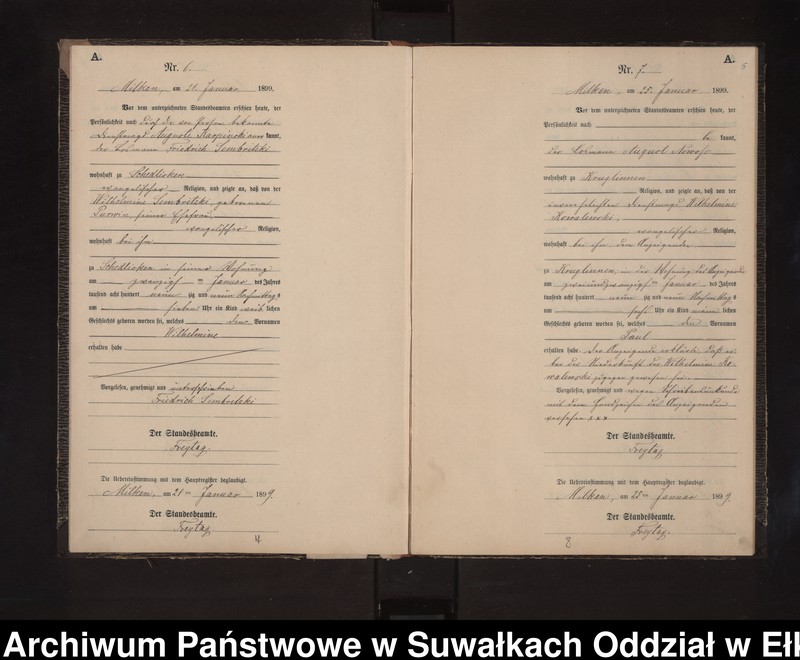 A.
Nr. 6.
Milken, am 21. Januar 1899.
Vor dem unterzeichneten Standesbeamten erschien heute, der
Persönlichkeit nach durch die Person bekannte
Dienstmagd Auguste Karpinski kannt,
der Losmann Friedrich Sembritzki
wohnhaft zu Schedlisken
evangelischer Religion, und zeigte an, daß von der
Wilhelmine Sembritzki geborenen
seiner Ehefrau,
evangelischer Religion,
wohnhaft bei ihm
zu Schedlisken in seiner Wohnung
am zwanzigsten Januar des Jahres
tausend acht hundert neunzig und neun Nachmittags
um sieben Uhr ein Kind weiblichen
Geschlechts geboren worden sei, welches den Vornamen
Wilhelmine
erhalten habe
Vorgelesen, genehmigt und unterschrieben
Friedrich Sembritzki
Der Standesbeamte.
Freytag.
Die Uebereinstimmung mit dem Hauptregister beglaubigt.
Milken, am 21ten Januar 1899.
Der Standesbeamte.
Freytag
4
A.
5
Nr. 7.
Milken, am 25. Januar 1899.
Vor dem unterzeichneten Standesbeamten erschien heute, der
Persönlichkeit nach
be kannt,
der Losmann August
wohnhaft zu Konglinnen
Religion, und zeigte an, daß von der
unverehelichten Dienstmagd Wilhelmine
Kowalewski,
evangelischer Religion,
wohnhaft bei ihm dem Anzeigenden
zu Konglinnen, in der Wohnung des Anzeigenden
am zweiundzwanzigsten Januar des Jahres
tausend acht hundert neunzig und neun Nachmittags
um Uhr ein Kind männlichen
Geschlechts geboren worden sei, welches den Vornamen
Paul
erhalten habe. Der Anzeigende erklärte, daß er
bei der Niederkunft der Wilhelmine Ko-
walewski zugegen gewesen sei.
Vorgelesen, genehmigt und wegen Schreibensunkunde
mit dem Handzeichen des Anzeigenden
versehen xxx
Der Standesbeamte.
Freytag
Die Uebereinstimmung mit dem Hauptregister beglaubigt.
Milken, am 25ten Januar 1899.
Der Standesbeamte.
Freytag.
8
Archiwum Państwowe w Suwałkach Oddział w Ełk